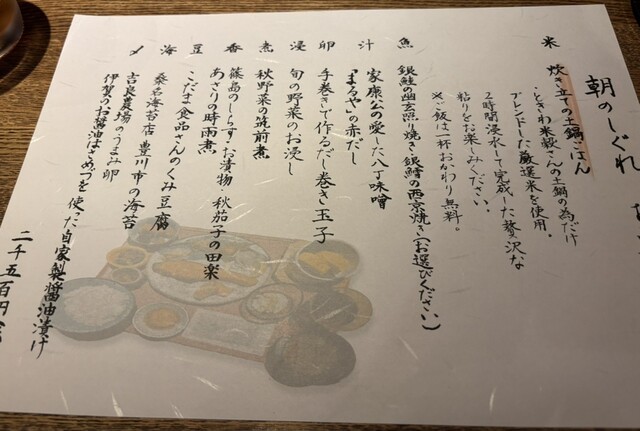 朝のしぐれ
米 炊き立ての土鍋ごはん
・ときわ米穀さんの土鍋の為だけ
ブレンドした厳選米を使用。
2時間浸水して完成した贅沢な
粘りをお楽しみください。
※ご飯は一杯おかわり無料。
魚 銀鮭の幽玄焼き・銀鱈の西京焼き(お選びください)
汁 家康公の愛した八丁味噌
「まるや」の赤だし
卵 手巻きで作るだし巻き玉子
浸 旬の野菜のお浸し
煮 秋野菜の筑前煮
あさりの時雨煮
香 篠島のしらす・お漬物 秋茄子の田楽
豆 こだま食品さんのくみ豆腐
海 桑名海苔店 豊川市の海苔
〆 吉良農場のうまみ卵
伊賀のお醤油はさめづを使った自家製醤油漬け
二千五百円